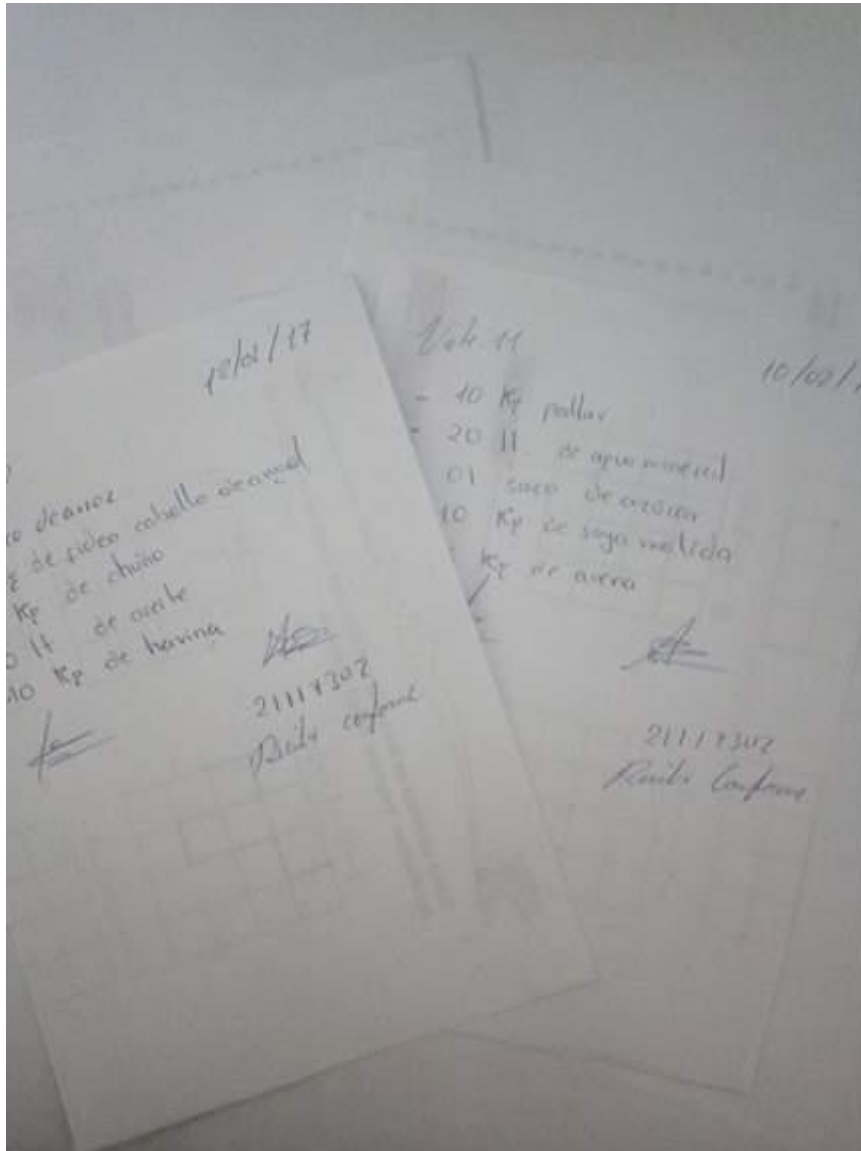 12/02/17
de arroz
de fideo cabello de angel
Kg de chuño
lt de aceite
10 Kg de harina
21117302
Recibi conforme
Vale 11
10/02/1
- 10 Kg pallar
- 20 lt de agua mineral
01 saco de azúcar
10 Kg de soya molida
Kg de avena
21117302
Recibi Conforme